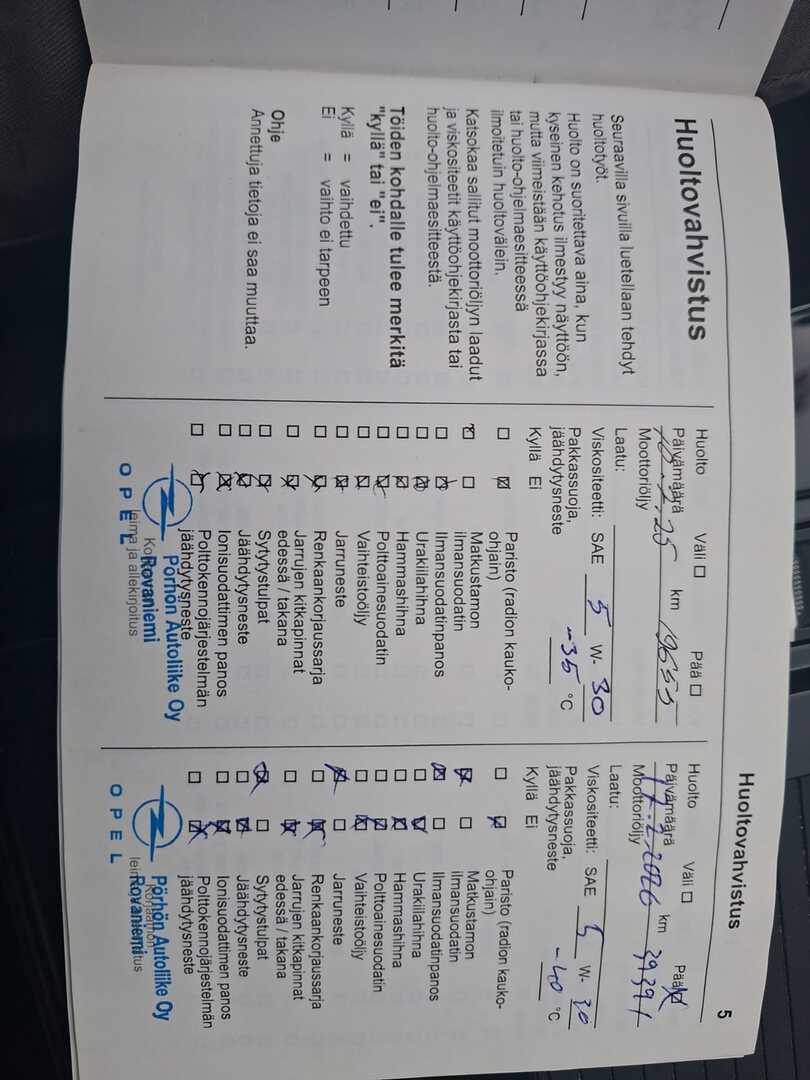 Huoltovahvistus
Seuraavilla sivuilla luetellaan tehdyt
huoltotyöt.
Huolto on suoritettava aina, kun
kyseinen kehotus ilmestyy näyttöön,
mutta viimeistään käyttöohjekirjassa
tai huolto-ohjelmaesitteessä
ilmoitetuin huoltovälein.
Katsokaa sallitut moottoriöljyn laadut
ja viskositeetit käyttöohjekirjasta tai
huolto-ohjelmaesitteestä.
Töiden kohdalle tulee merkitä
"kyllä" tai "ei".
Kyllä = vaihdettu
Ei = vaihto ei tarpeen
Ohje
Annettuja tietoja ei saa muuttaa.
Huolto Väli Pää
Päivämäärä km
Moottoriöljy
Laatu:
Viskositeetti: SAE 5 W- 30
Pakkassuoja,
jäähdytysneste -35 °C
Kyllä Ei
Paristo (radion kauko-
ohjain)
Matkustamon
ilmansuodatin
Ilmansuodatinpanos
Urakiilahihna
Hammashihna
Polttoainesuodatin
Vaihteistoöljy
Jarruneste
Renkaankorjaussarja
Jarrujen kitkapinnat
edessä / takana
Sytytystulpat
Jäähdytysneste
Ionisuodattimen panos
Polttokennojärjestelmän
jäähdytysneste
Pörhön Autoliike Oy
Rovaniemi
leima ja allekirjoitus
OPEL
Huoltovahvistus 5
Huolto Väli Pää
Päivämäärä km 39391
Moottoriöljy
Laatu:
Viskositeetti: SAE 5 W- 30
Pakkassuoja,
jäähdytysneste -40 °C
Kyllä Ei
Paristo (radion kauko-
ohjain)
Matkustamon
ilmansuodatin
Ilmansuodatinpanos
Urakiilahihna
Hammashihna
Polttoainesuodatin
Vaihteistoöljy
Jarruneste
Renkaankorjaussarja
Jarrujen kitkapinnat
edessä / takana
Sytytystulpat
Jäähdytysneste
Ionisuodattimen panos
Polttokennojärjestelmän
jäähdytysneste
Pörhön Autoliike Oy
Korjaamon
Rovaniemi
OPEL